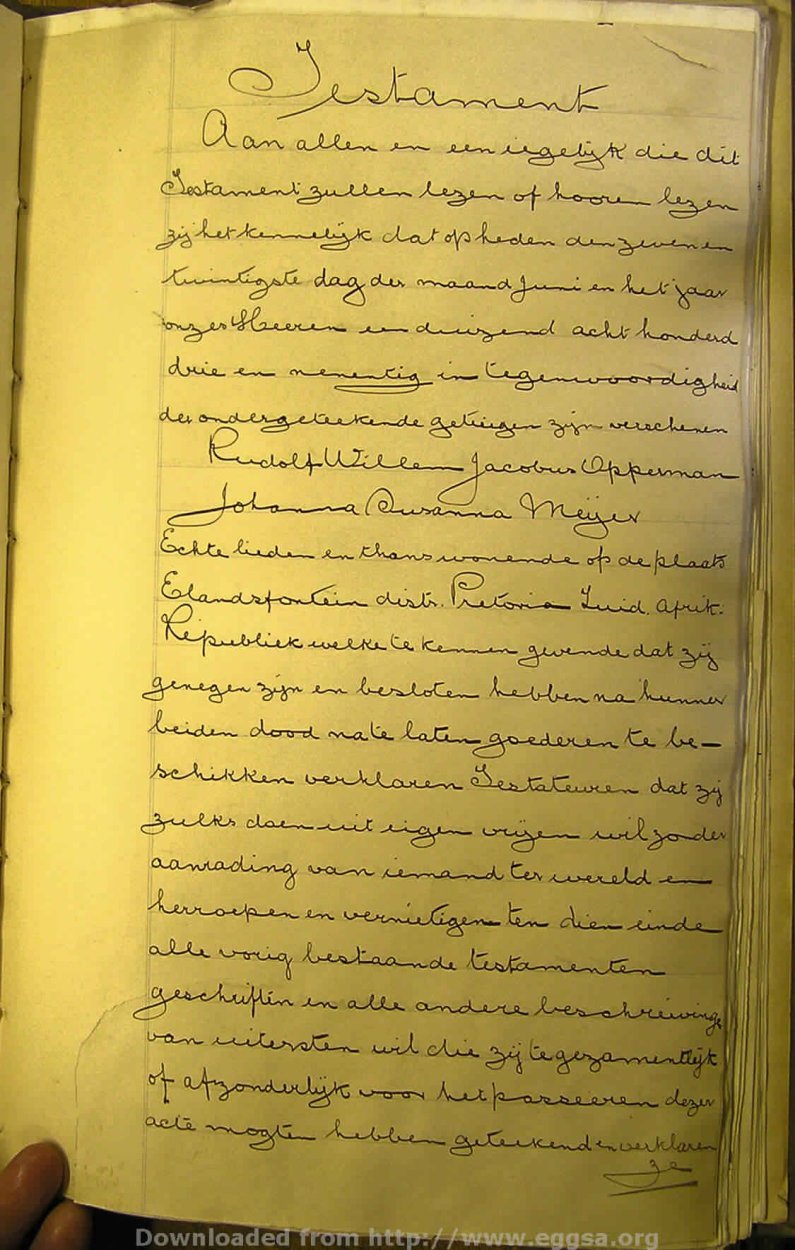 Testament
Aan allen en een iegelijk die dit
Testament zullen lezen of hooren lezen
zij het kennelijk dat op heden den zeven en
twintigste dag der maand Juni en het jaar
onzes Heeren een duizend acht honderd
drie en nenentig in tegenwoordigheid
der ondergeteekende getuigen zijn verschenen
Rudolf Willem Jacobus Opperman
Johanna Susanna Meijer
Echte lieden en thans wonende op de plaats
Elandsfontein distr. Pretoria Zuid. Afrik.
Republiek welke te kennen gevende dat zij
genegen zijn en besloten hebben na hunner
beiden dood na te laten goederen te be-
schikken verklaren Testateuren dat zij
zulks doen uit eigen vrijen wil zonder
aanrading van iemand ter wereld en
herroepen en vernietigen ten dien einde
alle vorig bestaande testamenten
geschriften en alle andere beschreivings
van uitersten wil die zij tegezamentlijk
of afzonderlijk voor het passeeren dezer
acte mogten hebben geteekend en verklaren
ze
Downloaded from http://www.eggsa.org